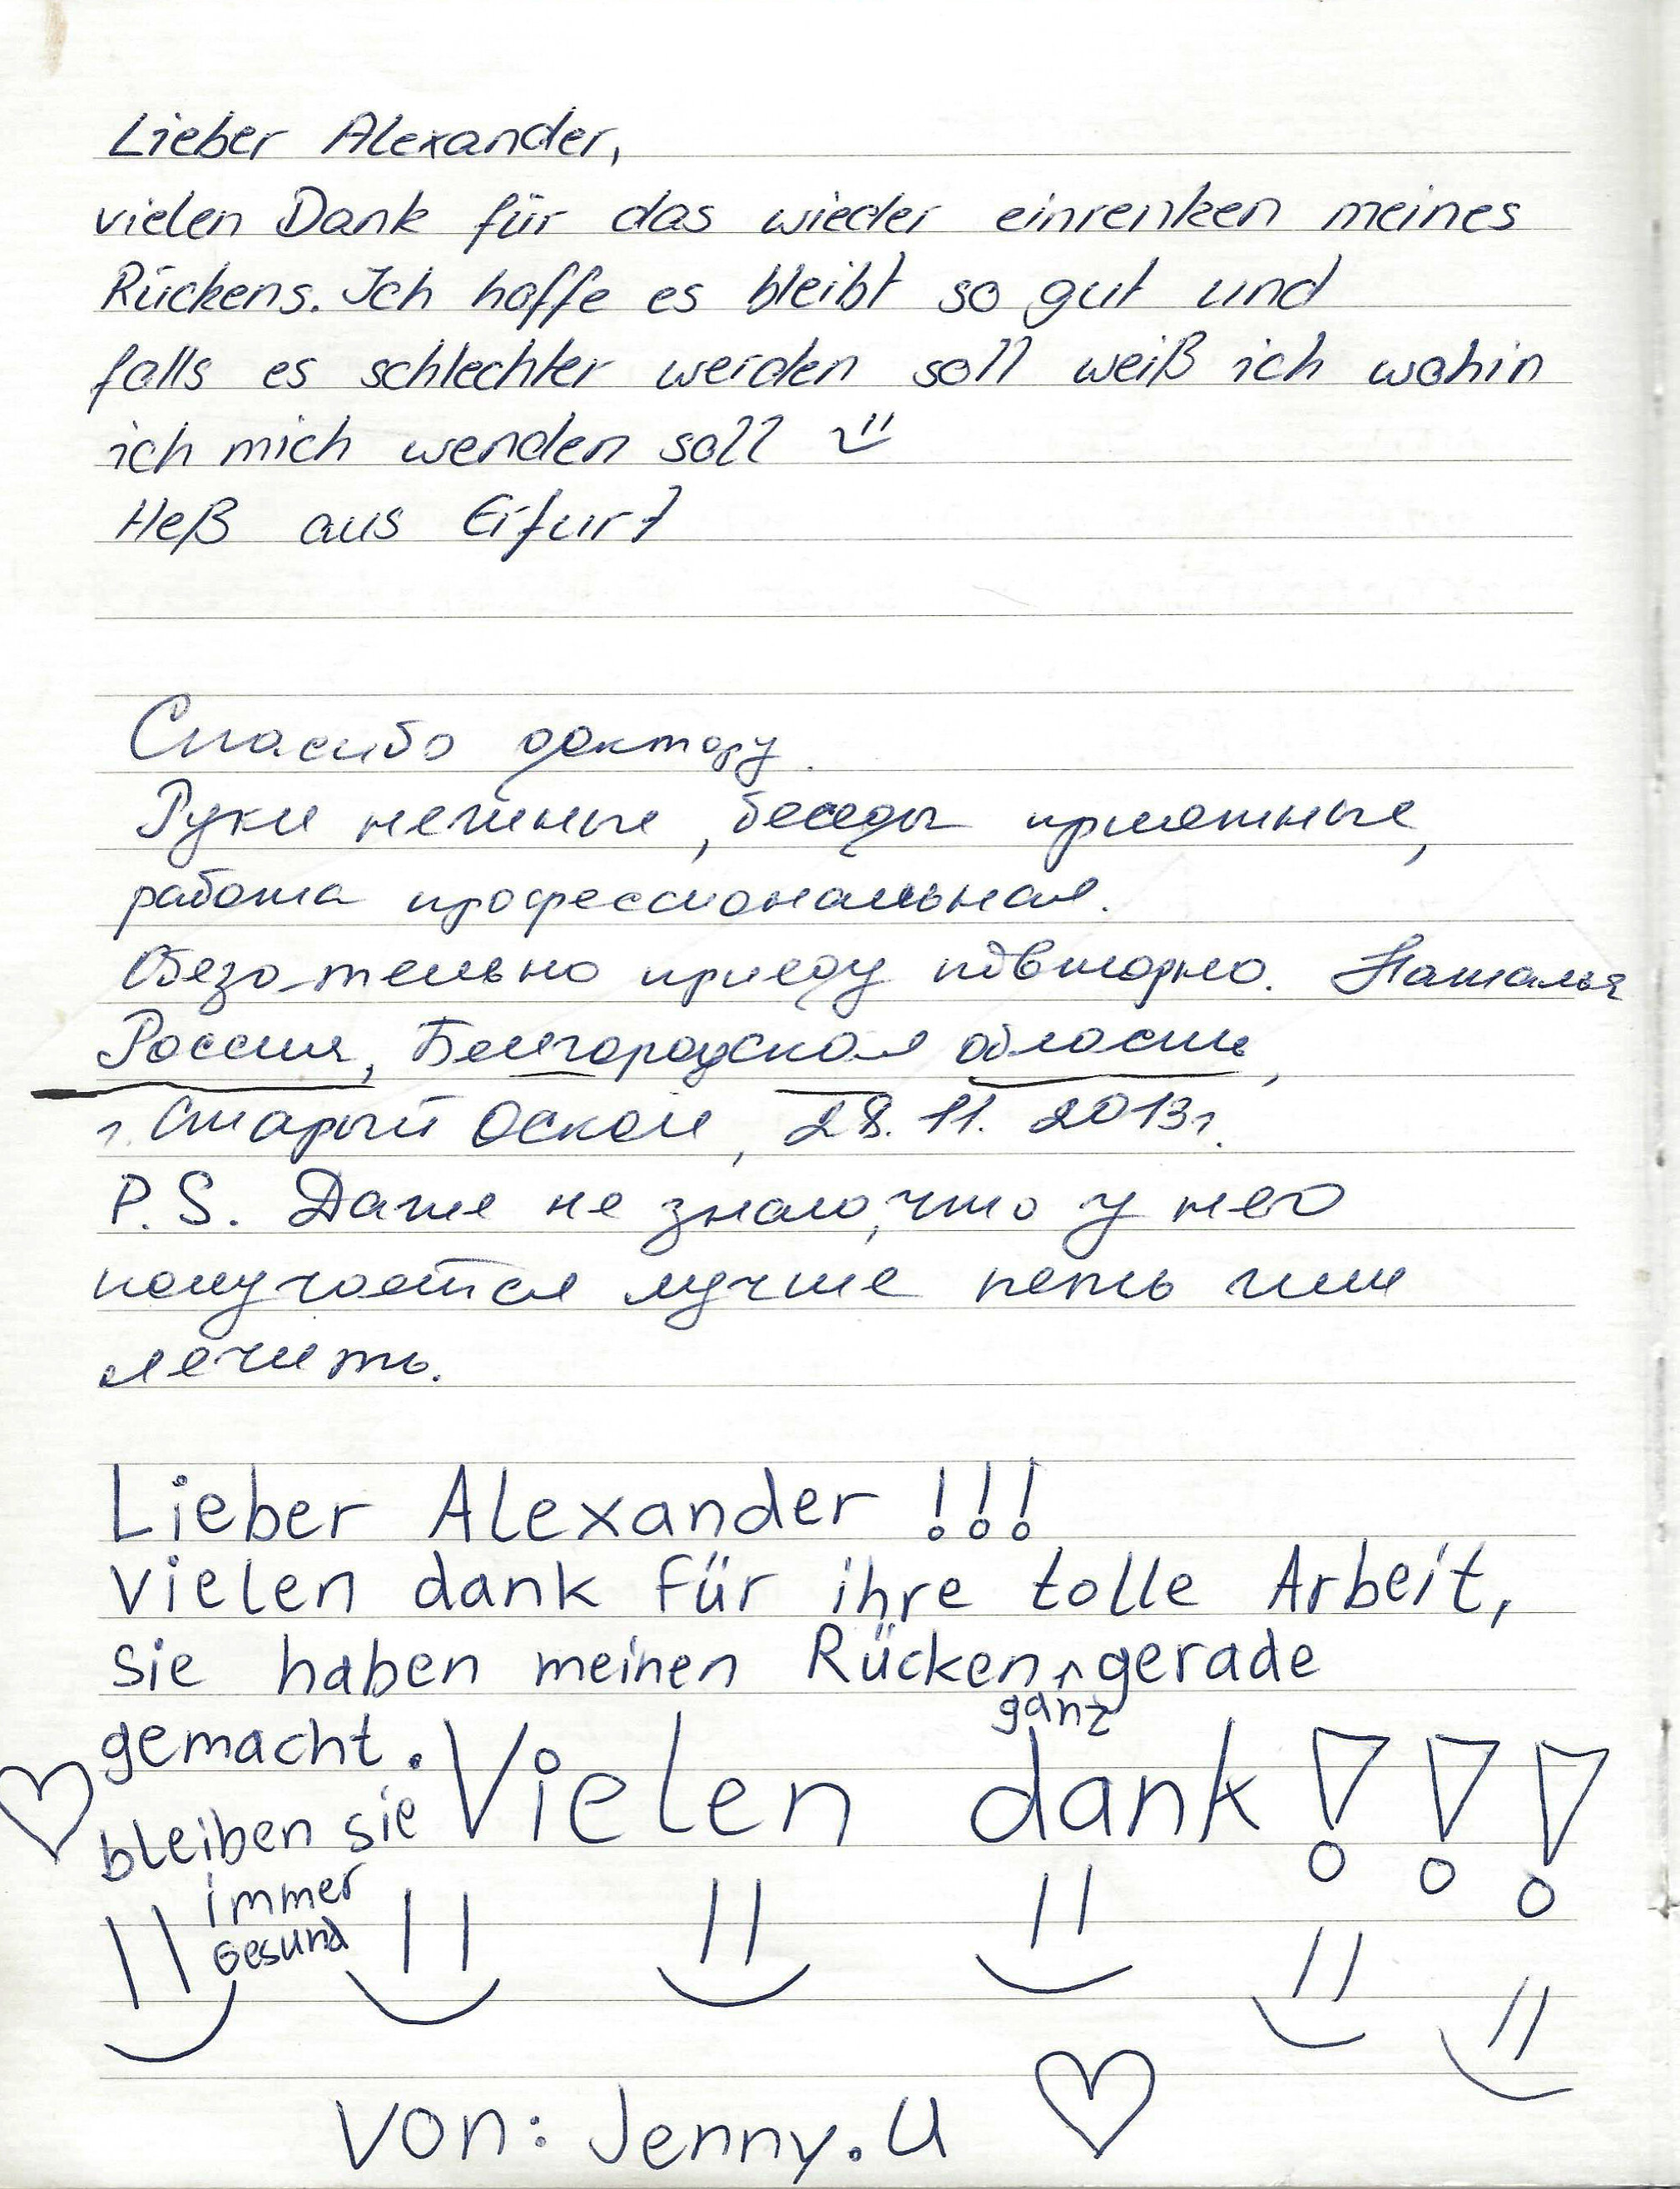 Lieber Alexander,
vielen Dank für das wieder einrenken meines
Rückens. Ich hoffe es bleibt so gut und
falls es schlechter werden soll weiß ich wohin
ich mich wenden soll
Heß aus Erfurt
Спасибо доктору.
Руки нежные, беседы приятные,
работа профессиональная.
Обязательно приеду повторно. Наталья
Россия, Белгородская область,
г. Старый Оскол, 28.11.2013г.
P.S. Даже не знаю, что у него
получается лучше петь или
лечить.
Lieber Alexander !!!
vielen dank für ihre tolle Arbeit,
sie haben meinen Rücken ganz gerade
gemacht. Vielen dank !!!
bleiben sie
immer
Gesund
von: Jenny.U